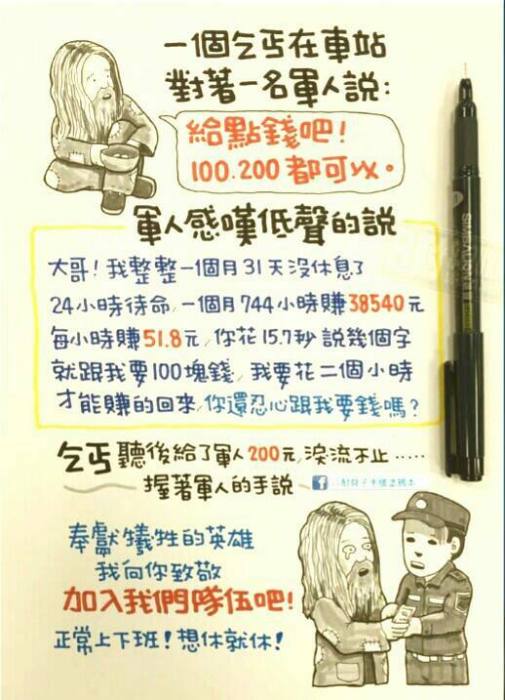 一個乞丐在車站
對著一名軍人說:
給點錢吧!
100.200都可以。
軍人感嘆低聲的說
大哥!我整整一個月31天沒休息了
24小時待命,一個月744小時賺38540元
每小時賺51.8元,你花15.7秒說幾個字
就跟我要100塊錢,我要花二個小時
才能賺的回來,你還忍心跟我要錢嗎?
乞丐聽後給了軍人200元,淚流不止.....
握著軍人的手說
奉獻犧牲的英雄
我向你致敬
加入我們隊伍吧!
正常上下班!想休就休!